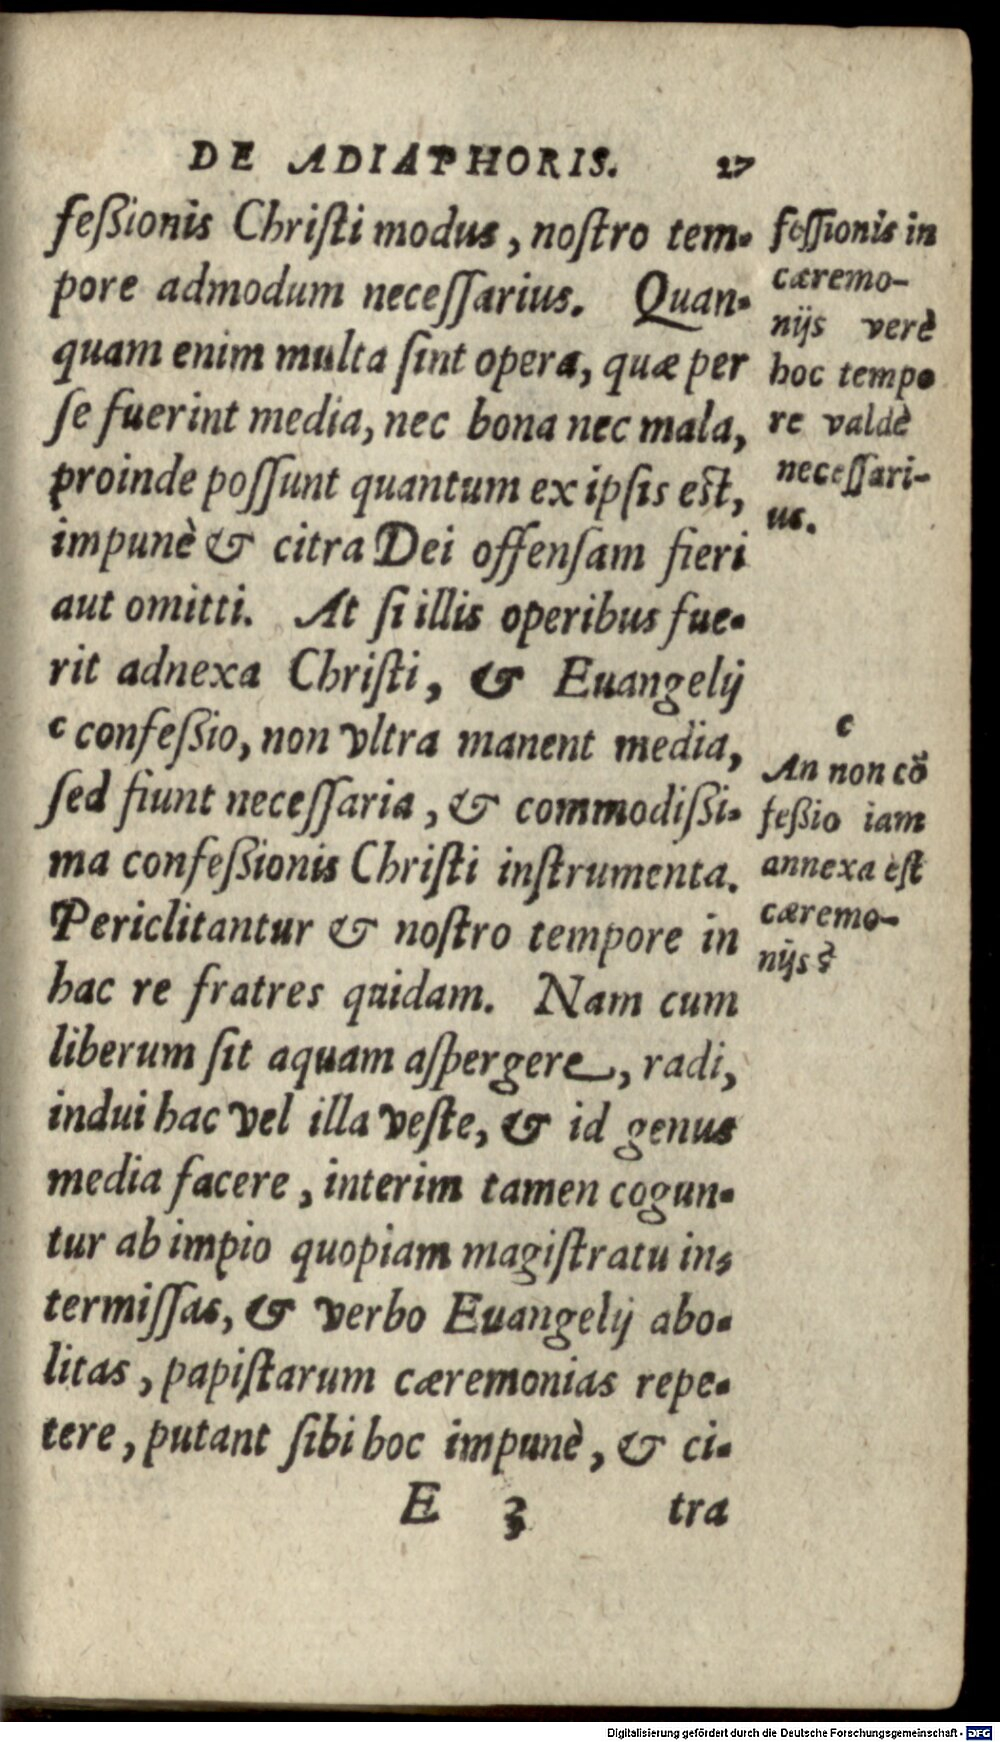 DE ADIAPHORIS. 27
feßionis Christi modus, nostro tem-
pore admodum necessarius. Quan-
quam enim multa sint opera, quæ per
se fuerint media, nec bona nec mala,
proinde possunt quantum ex ipsis est,
impunè & citra Dei offensam fieri
aut omitti. At si illis operibus fue-
rit adnexa Christi, & Euangelij
c confeßio, non vltra manent media,
sed fiunt necessaria, & commodißi-
ma confeßionis Christi instrumenta.
Periclitantur & nostro tempore in
hac re fratres quidam. Nam cum
liberum sit aquam aspergere, radi,
indui hac vel illa veste, & id genus
media facere, interim tamen cogun-
tur ab impio quopiam magistratu in-
termissas, & verbo Euangelij abo-
litas, papistarum cæremonias repe-
tere, putant sibi hoc impunè, & ci-
E 3 tra
fessionis in
cæremo-
nijs verè
hoc tempo
re valdè
necessari-
us.
c
An non cō
feßio iam
annexa est
cæremo-
nijs?
Digitalisierung gefördert durch die Deutsche Forschungsgemeinschaft - DFG